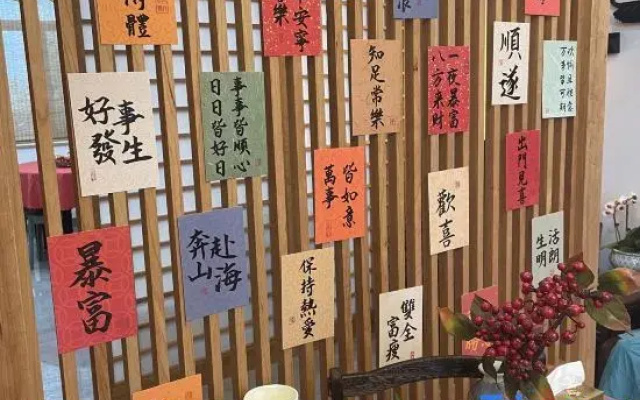 體
安寧
樂
知足常樂
一夜暴富
八方來財
順遂
好事
發生
事事皆順心
日日皆好日
萬事
皆如意
歡喜
出門見喜
暴富
奔赴
山海
保持熱愛
雙全
富瘦
生活
明朗